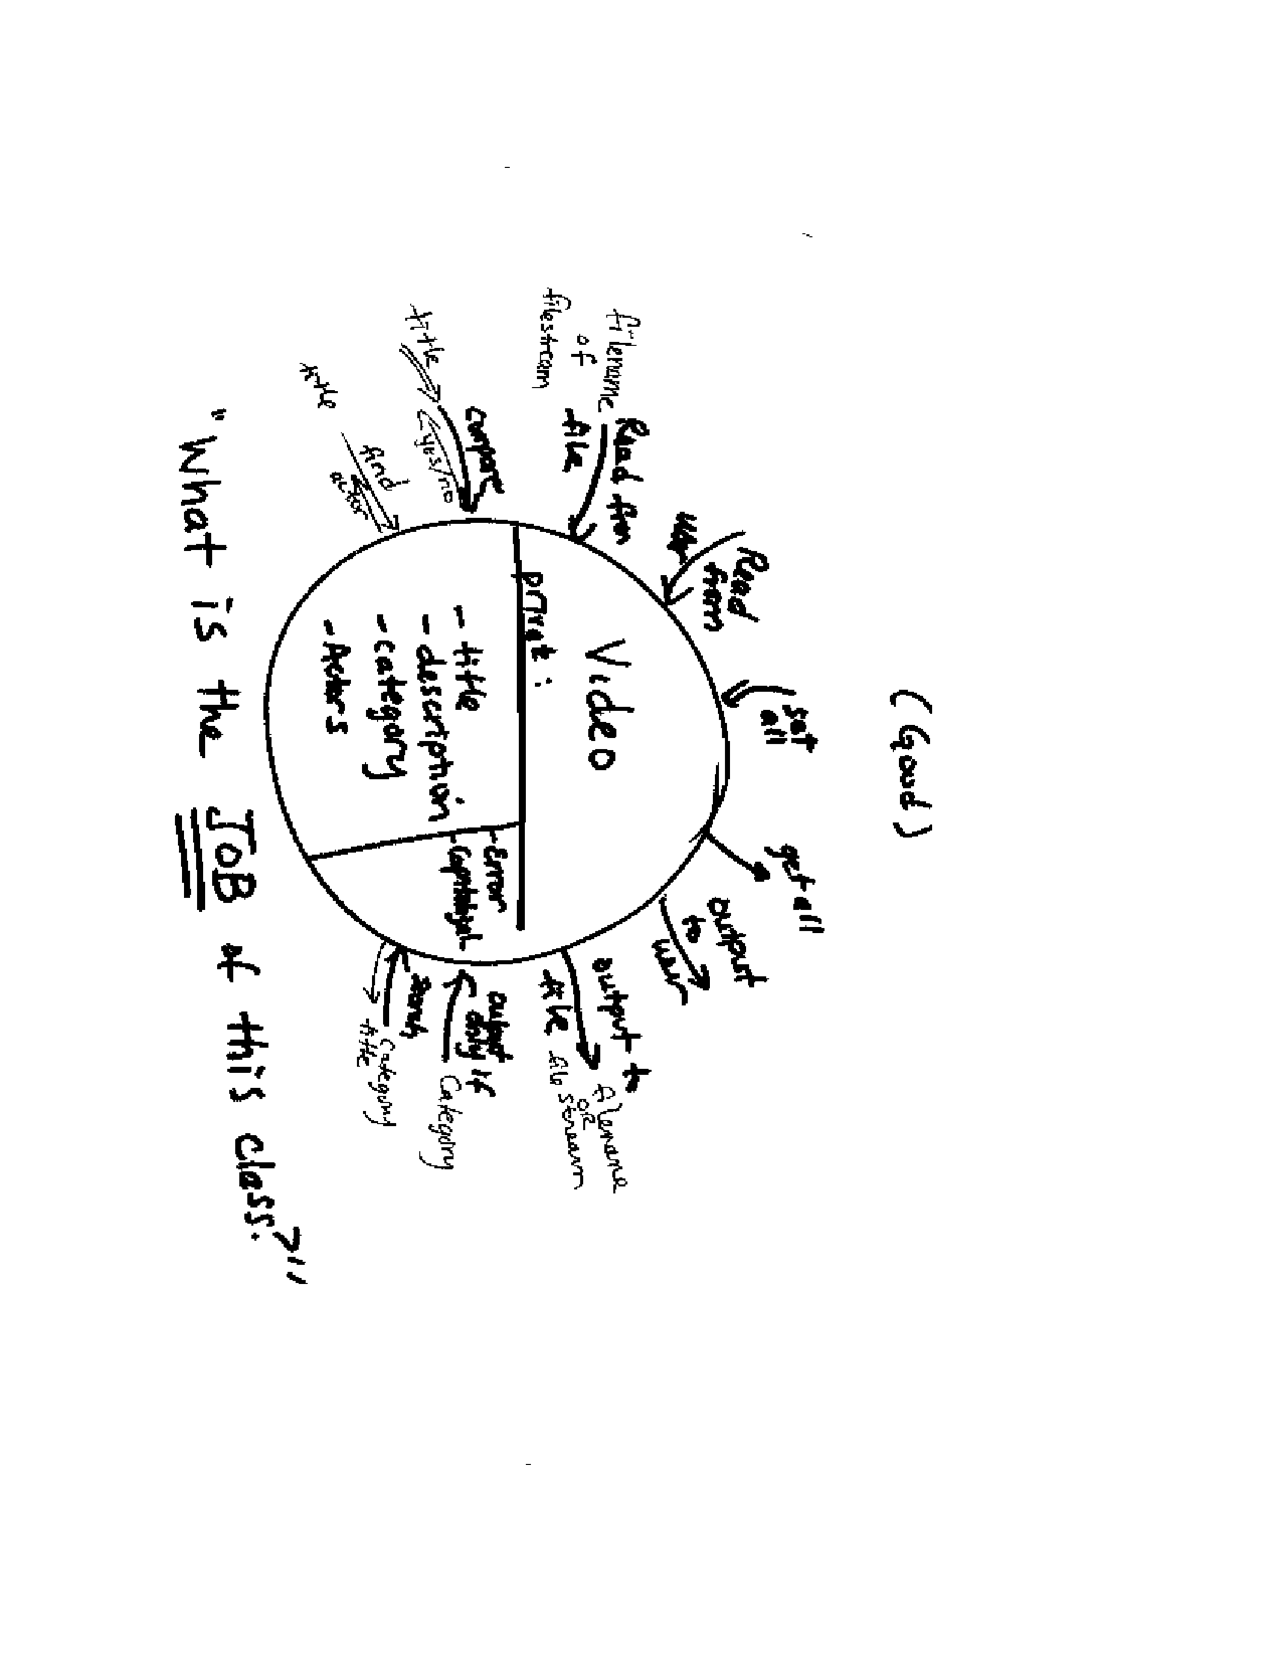 (Good)
set
all
get all
Read
from
user
output
to
user
Read from
file
filename
of
filestream
output to
file
filename
OR
file stream
Video
private:
- title
- description
- category
- Actors
- Error
compare
title
yes/no
find
title
output
only if
Category
search
Category
title
"What is the JOB of this class?"